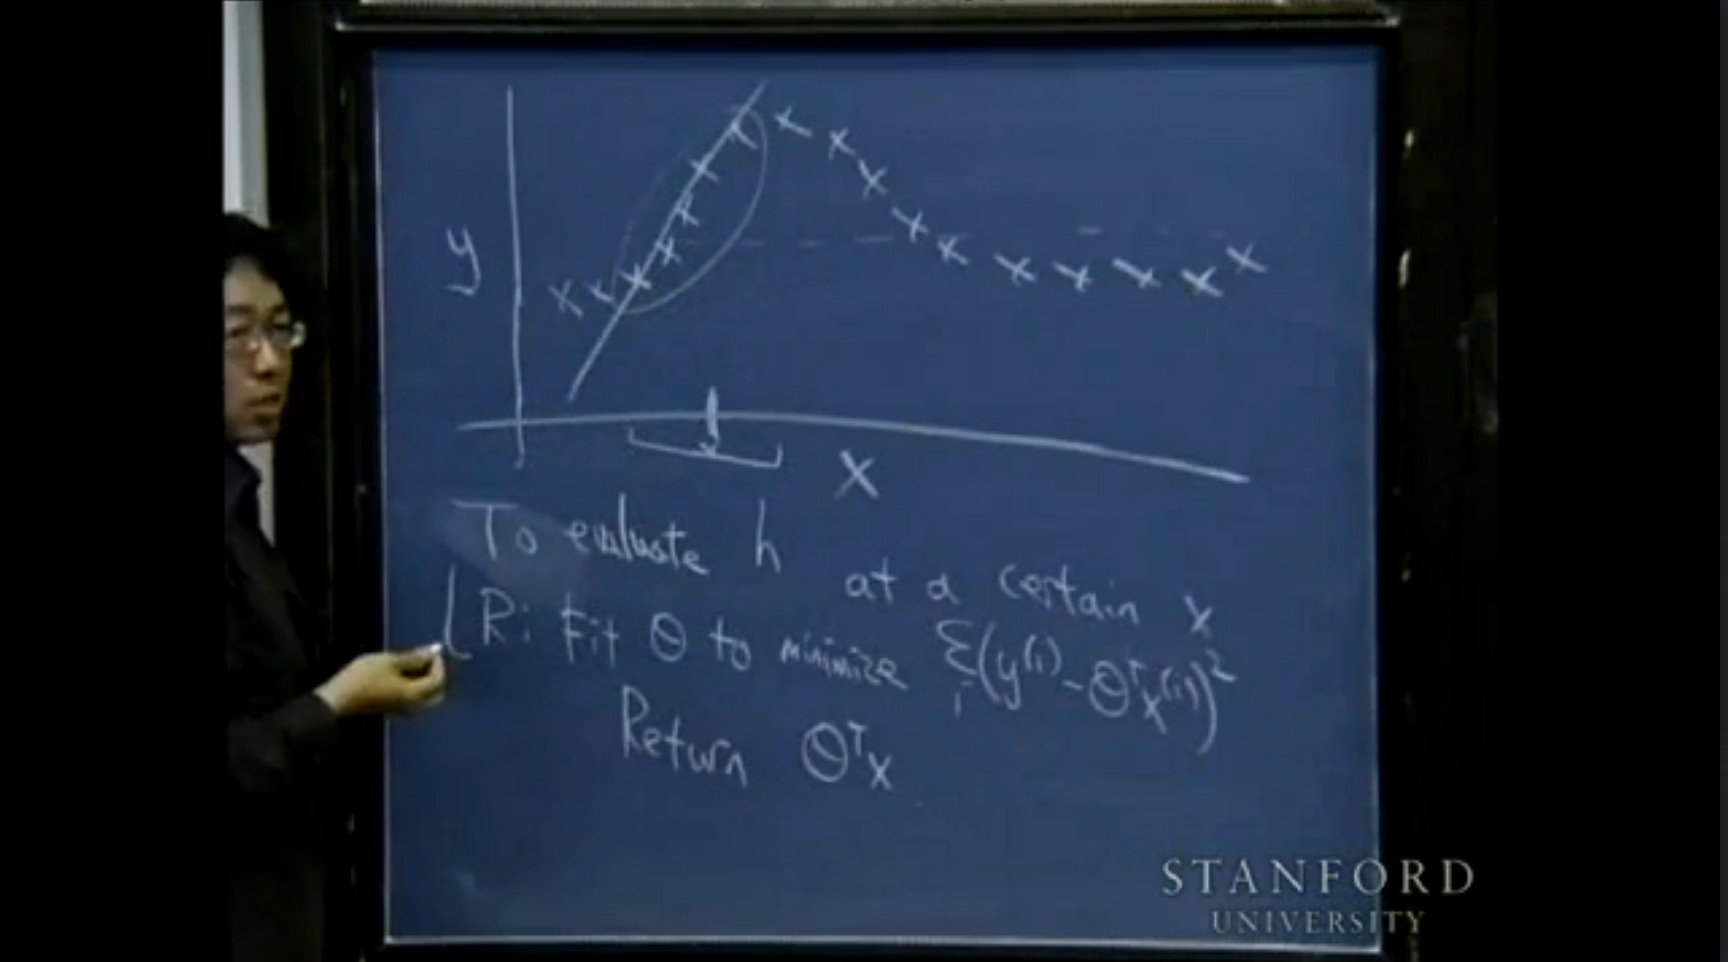 y
x
To evaluate h at a certain x
LR: Fit θ to minimize Σᵢ(y⁽ⁱ⁾ - θᵀx⁽ⁱ⁾)²
Return θᵀx
STANFORD
UNIVERSITY